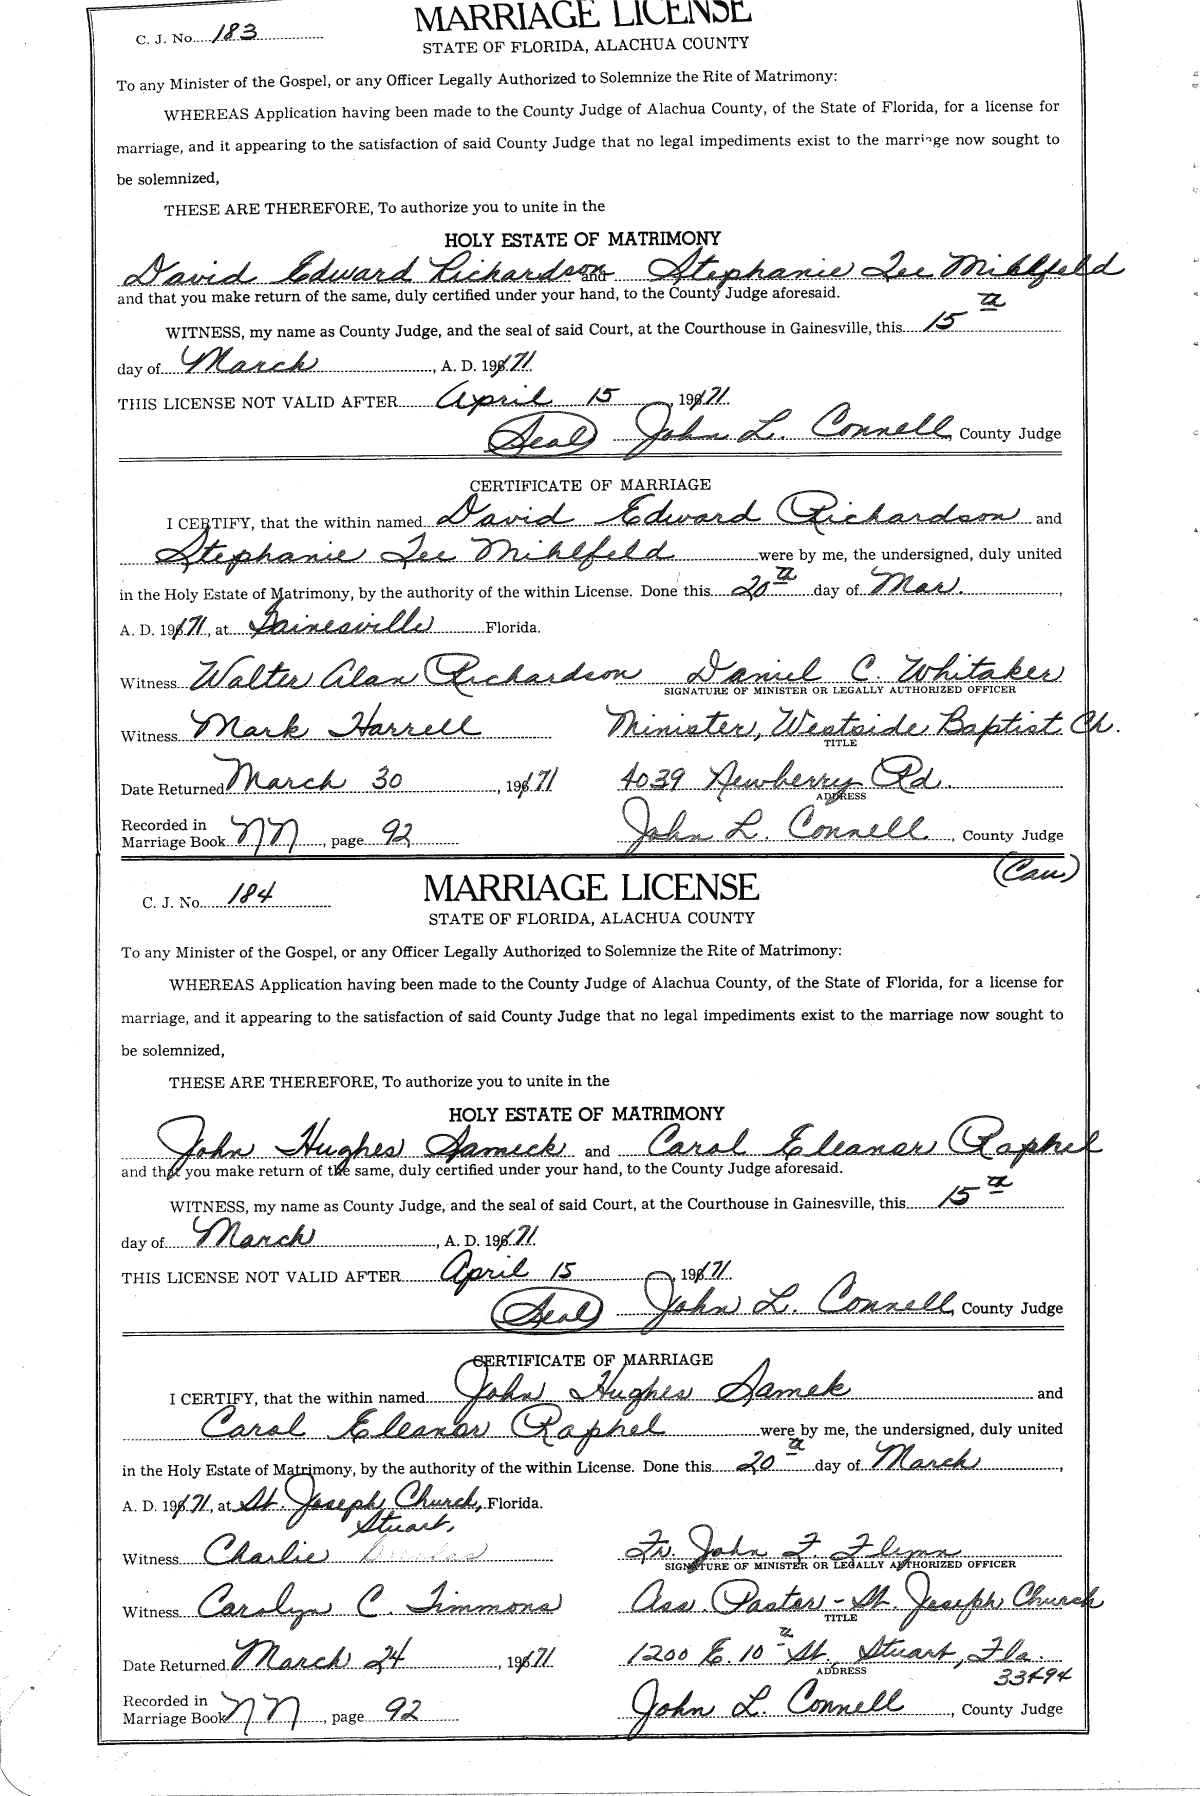 C. J. No. 183
MARRIAGE LICENSE
STATE OF FLORIDA, ALACHUA COUNTY
To any Minister of the Gospel, or any Officer Legally Authorized to Solemnize the Rite of Matrimony:
WHEREAS Application having been made to the County Judge of Alachua County, of the State of Florida, for a license for
marriage, and it appearing to the satisfaction of said County Judge that no legal impediments exist to the marriage now sought to
be solemnized,
THESE ARE THEREFORE, To authorize you to unite in the
HOLY ESTATE OF MATRIMONY
David Edward Richardson and Stephanie Lee Mihlfeld
and that you make return of the same, duly certified under your hand, to the County Judge aforesaid.
WITNESS, my name as County Judge, and the seal of said Court, at the Courthouse in Gainesville, this 15th
day of March, A. D. 1971.
THIS LICENSE NOT VALID AFTER April 15, 1971.
(Seal) John L. Connell, County Judge
CERTIFICATE OF MARRIAGE
I CERTIFY, that the within named David Edward Richardson and
Stephanie Lee Mihlfeld were by me, the undersigned, duly united
in the Holy Estate of Matrimony, by the authority of the within License. Done this 20th day of Mar.,
A. D. 1971, at Gainesville Florida.
Witness Walter Alan Richardson Daniel C. Whitaker
SIGNATURE OF MINISTER OR LEGALLY AUTHORIZED OFFICER
Witness Mark Harrell Minister, Westside Baptist Ch.
TITLE
Date Returned March 30, 1971 4039 Newberry Rd.
ADDRESS
Recorded in
Marriage Book NN, page 92 John L. Connell, County Judge
(Cau)
C. J. No. 184
MARRIAGE LICENSE
STATE OF FLORIDA, ALACHUA COUNTY
To any Minister of the Gospel, or any Officer Legally Authorized to Solemnize the Rite of Matrimony:
WHEREAS Application having been made to the County Judge of Alachua County, of the State of Florida, for a license for
marriage, and it appearing to the satisfaction of said County Judge that no legal impediments exist to the marriage now sought to
be solemnized,
THESE ARE THEREFORE, To authorize you to unite in the
HOLY ESTATE OF MATRIMONY
John Hughes Sameck and Carol Eleanor Raphel
and that you make return of the same, duly certified under your hand, to the County Judge aforesaid.
WITNESS, my name as County Judge, and the seal of said Court, at the Courthouse in Gainesville, this 15th
day of March, A. D. 1971.
THIS LICENSE NOT VALID AFTER April 15, 1971.
(Seal) John L. Connell, County Judge
CERTIFICATE OF MARRIAGE
I CERTIFY, that the within named John Hughes Samek and
Carol Eleanor Raphel were by me, the undersigned, duly united
in the Holy Estate of Matrimony, by the authority of the within License. Done this 20th day of March,
A. D. 1971, at St. Joseph Church, Florida.
Stuart,
Witness Charlie Fr. John F. Flynn
SIGNATURE OF MINISTER OR LEGALLY AUTHORIZED OFFICER
Witness Carolyn C. Timmons Ass. Pastor - St. Joseph Church
TITLE
Date Returned March 24, 1971 1200 E. 10th St., Stuart, Fla.
ADDRESS 33494
Recorded in
Marriage Book NN, page 92 John L. Connell, County Judge